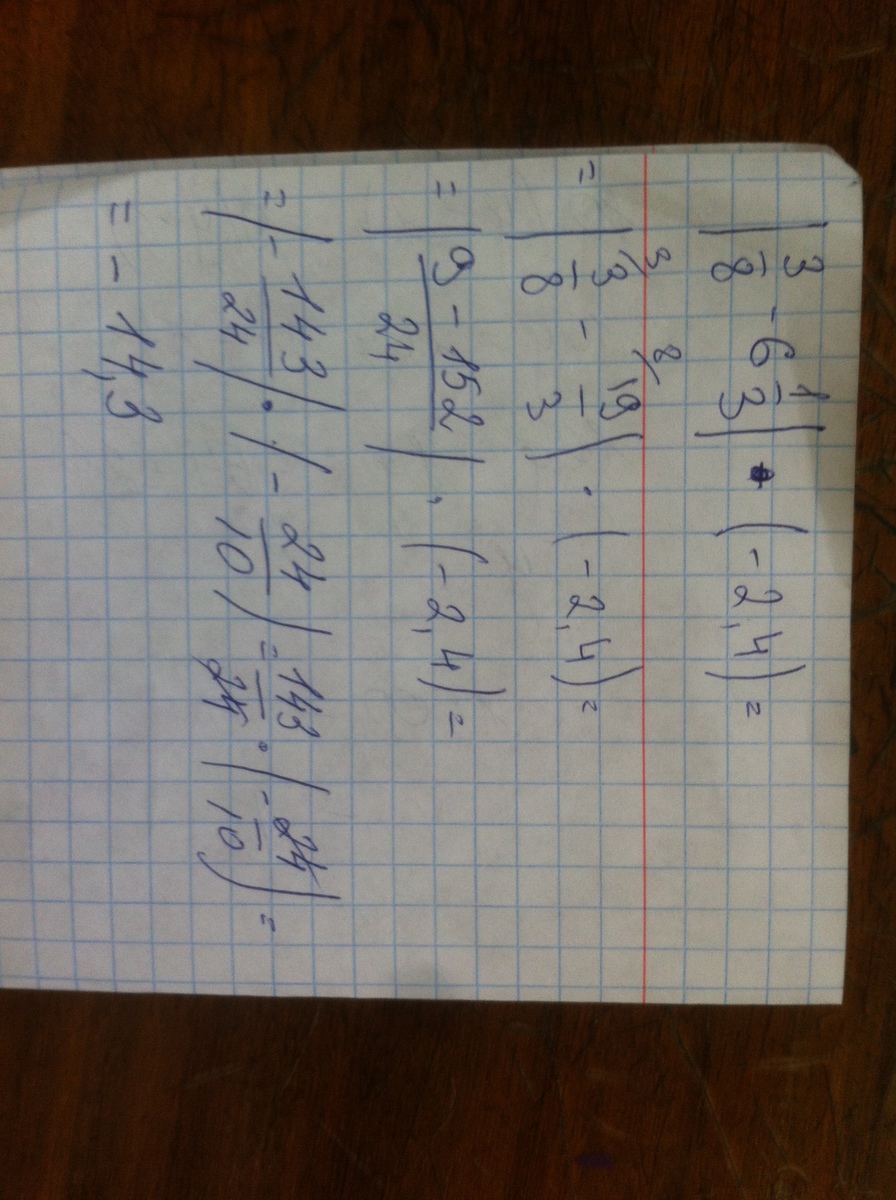 |3/8 - 6 1/3| • (-2,4) =
= |3/8 ³⁄ - 19/3 ⁸⁄| · (-2,4) =
= |(9 - 152)/24| · (-2,4) =
= |- 143/24| • (- 24/10) = 143/24 • (- 24/10) =
= - 14,3